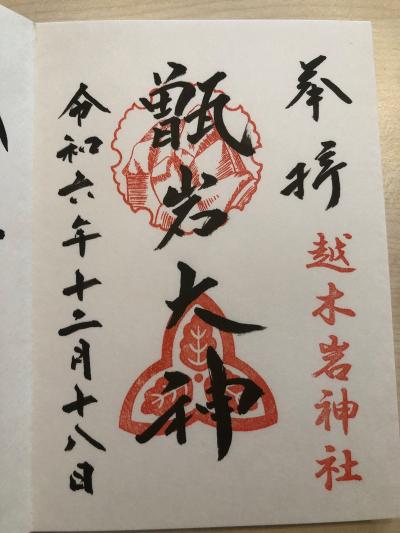 奉拝
越木岩神社
甑岩大神
令和六年十二月十八日